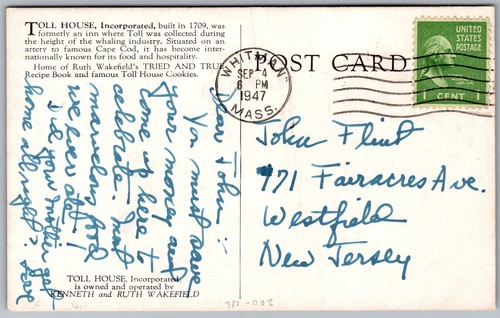 TOLL HOUSE, Incorporated, built in 1709, was
formerly an inn where Toll was collected during
the height of the whaling industry. Situated on an
artery to famous Cape Cod, it has become inter-
nationally known for its food and hospitality.
Home of Ruth Wakefield's TRIED AND TRUE
Recipe Book and famous Toll House Cookies.
Dear John:
You must save
your money and
come up here to
celebrate. Most
marvelous food
we ever ate!
Did your mother get
home all right? Love
TOLL HOUSE, Incorporated,
is owned and operated by
KENNETH and RUTH WAKEFIELD
POST CARD
WHITMAN
SEP 4
6 PM
1947
MASS.
UNITED
STATES
POSTAGE
1 CENT 1
John Flint
771 Fairacres Ave.
Westfield
New Jersey